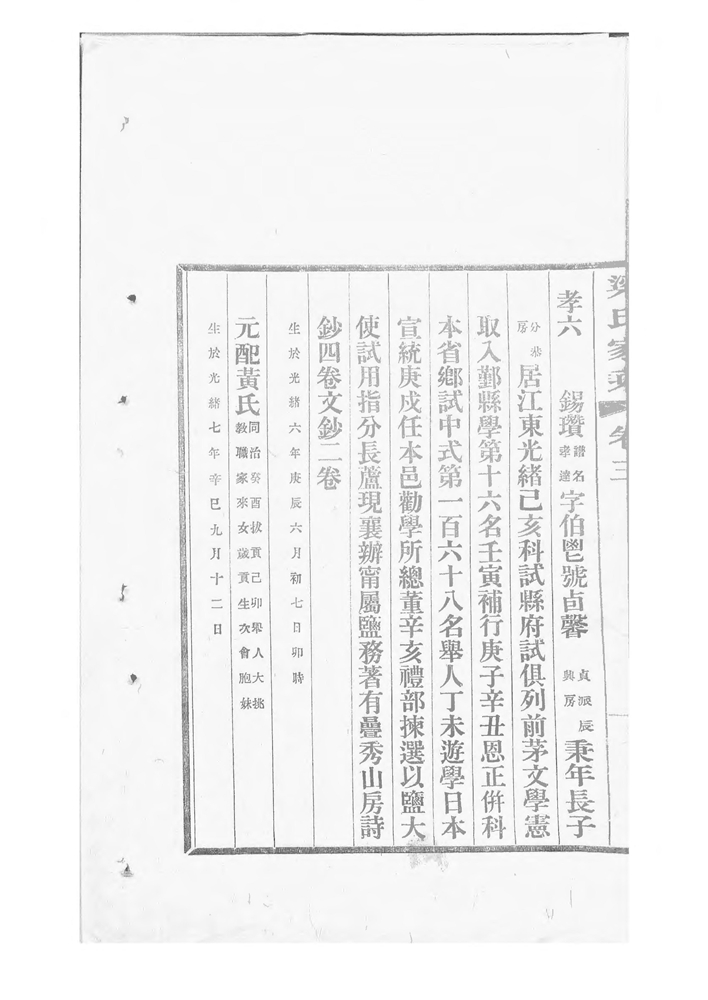 梁氏家乘 卷三
孝六 錫瓚 譜名孝達 字伯鬯號卣馨 貞派辰興房 秉年長子
分恭房 居江東光緒己亥科試縣府試俱列前茅文學憲
取入鄞縣學第十六名壬寅補行庚子辛丑恩正併科
本省鄉試中式第一百六十八名舉人丁未遊學日本
宣統庚戌任本邑勸學所總董辛亥禮部揀選以鹽大
使試用指分長蘆現襄辦甯屬鹽務著有疊秀山房詩
鈔四卷文鈔二卷
生於光緒六年庚辰六月初七日卯時
元配黃氏 同治癸酉拔貢己卯舉人大挑教職家來女歲貢生次會胞妹
生於光緒七年辛巳九月十二日